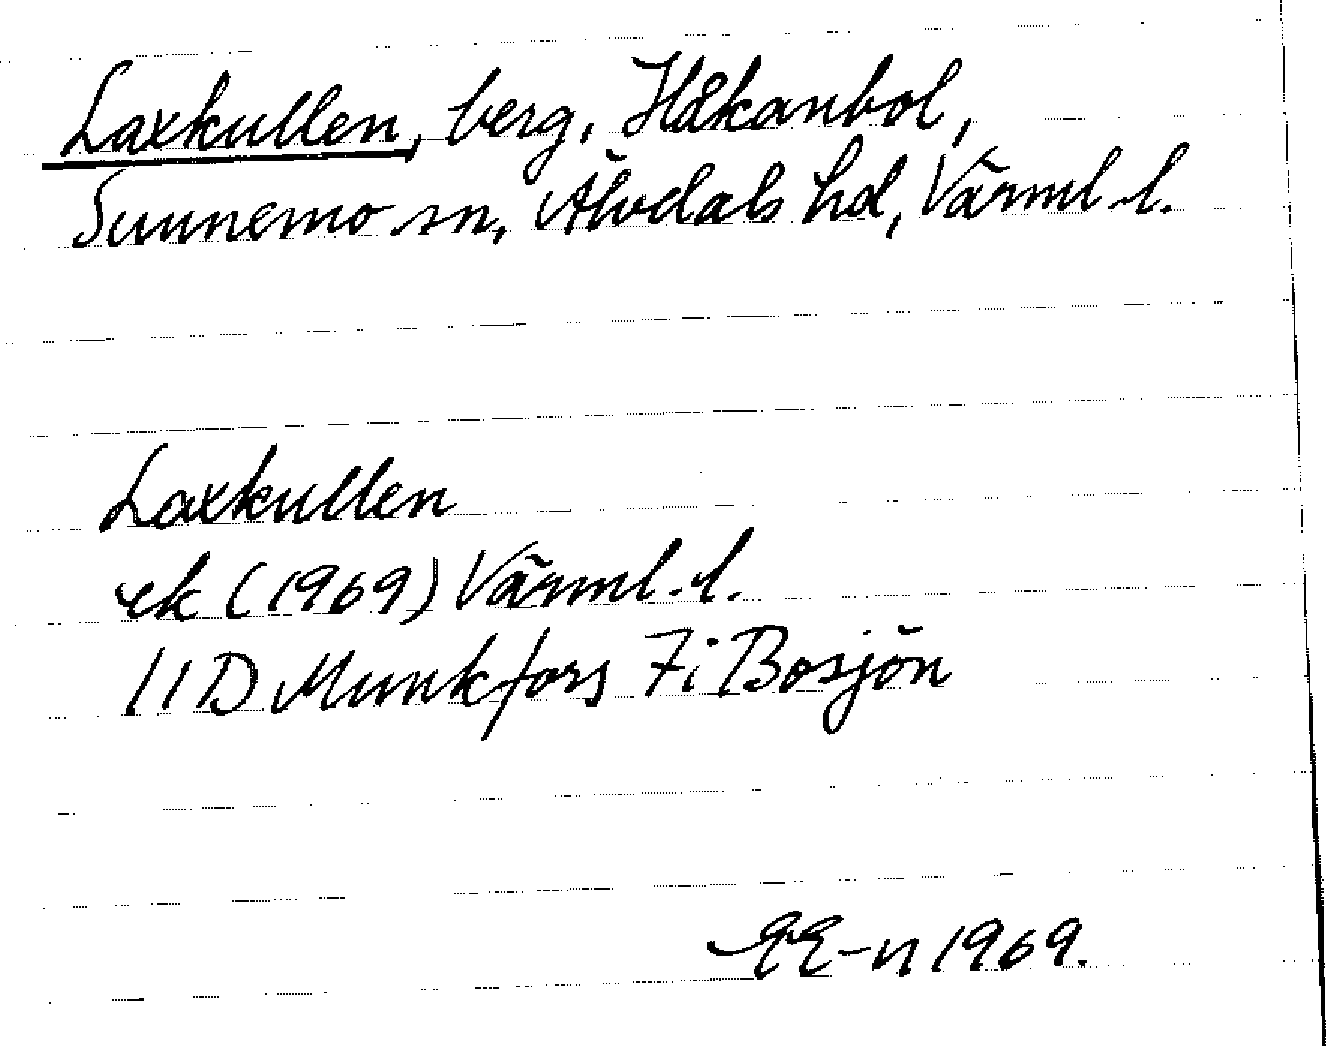 Laxkullen, berg, Håkanbol,
Sunnemo sn, Älvdals hd, Värml. l.
Laxkullen
ek (1969) Värml. l.
11D Munkfors 7i Bosjön
EE-n 1969.